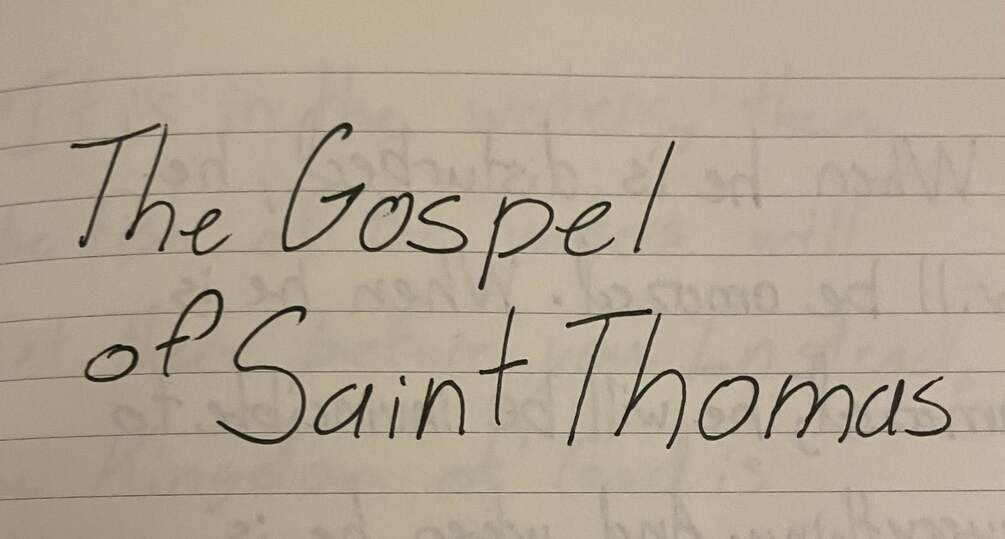 The Gospel
of Saint Thomas